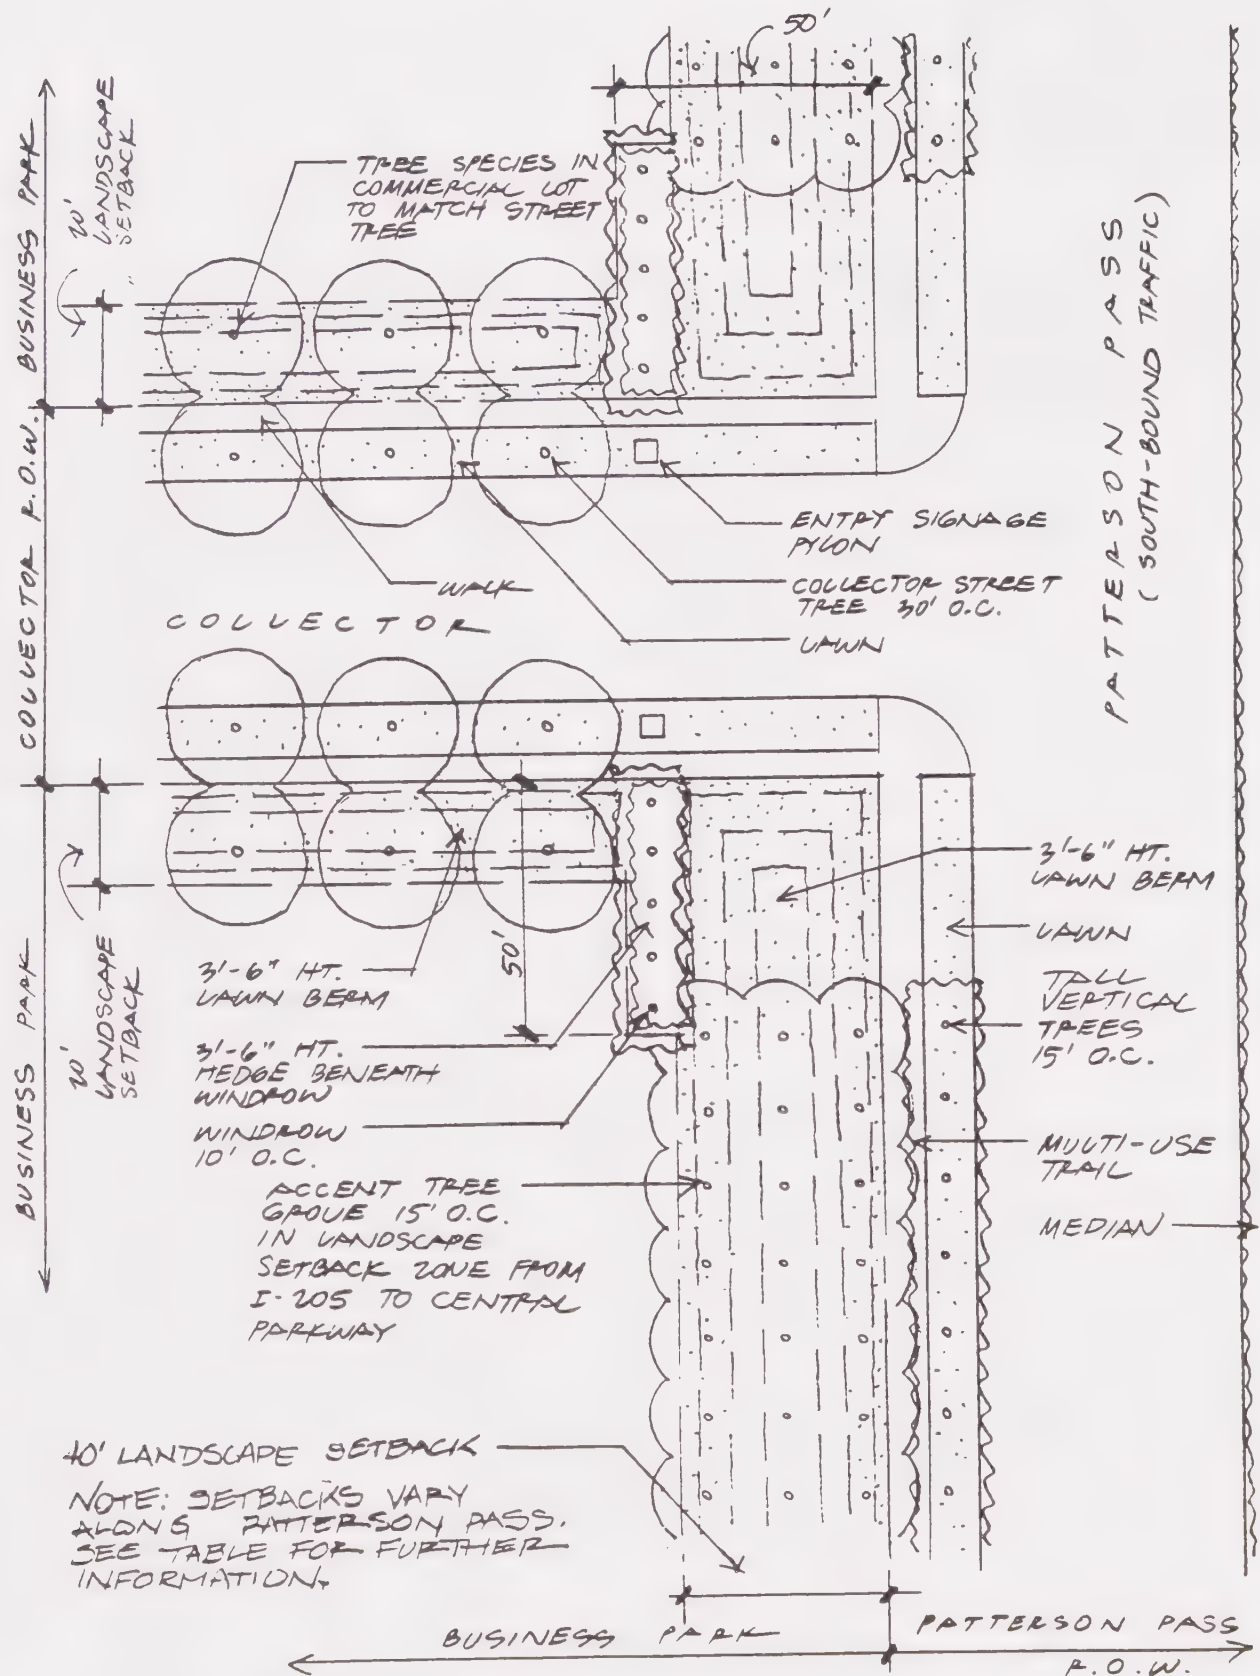 50'
20'
LANDSCAPE
SETBACK
BUSINESS PARK
TREE SPECIES IN
COMMERCIAL LOT
TO MATCH STREET
TREE
PATTERSON PASS
(SOUTH-BOUND TRAFFIC)
COLLECTOR R.O.W.
ENTRY SIGNAGE
PYLON
WALK
COLLECTOR STREET
TREE 30' O.C.
COLLECTOR
LAWN
3'-6" HT.
LAWN BERM
LAWN
TALL
VERTICAL
TREES
15' O.C.
MULTI-USE
TRAIL
MEDIAN
50'
20'
LANDSCAPE
SETBACK
BUSINESS PARK
3'-6" HT.
LAWN BERM
3'-6" HT.
HEDGE BENEATH
WINDROW
WINDROW
10' O.C.
ACCENT TREE
GROVE 15' O.C.
IN LANDSCAPE
SETBACK ZONE FROM
I-205 TO CENTRAL
PARKWAY
40' LANDSCAPE SETBACK
NOTE: SETBACKS VARY
ALONG PATTERSON PASS.
SEE TABLE FOR FURTHER
INFORMATION.
BUSINESS PARK
PATTERSON PASS
R.O.W.